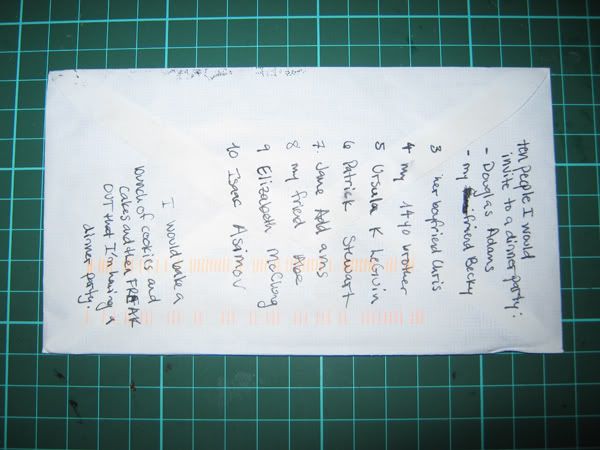 ten people I would
invite to a dinner party:
- Douglas Adams
- my friend Becky
3 her boyfriend Chris
4 my 14yo brother
5 Ursula K LeGuin
6 Patrick Stewart
7 Jane Addams
8 my friend
9 Elizabeth McClung
10 Isaac Asimov
I would bake a
bunch of cookies and
cakes and then FREAK
OUT that I'm having a
dinner party!